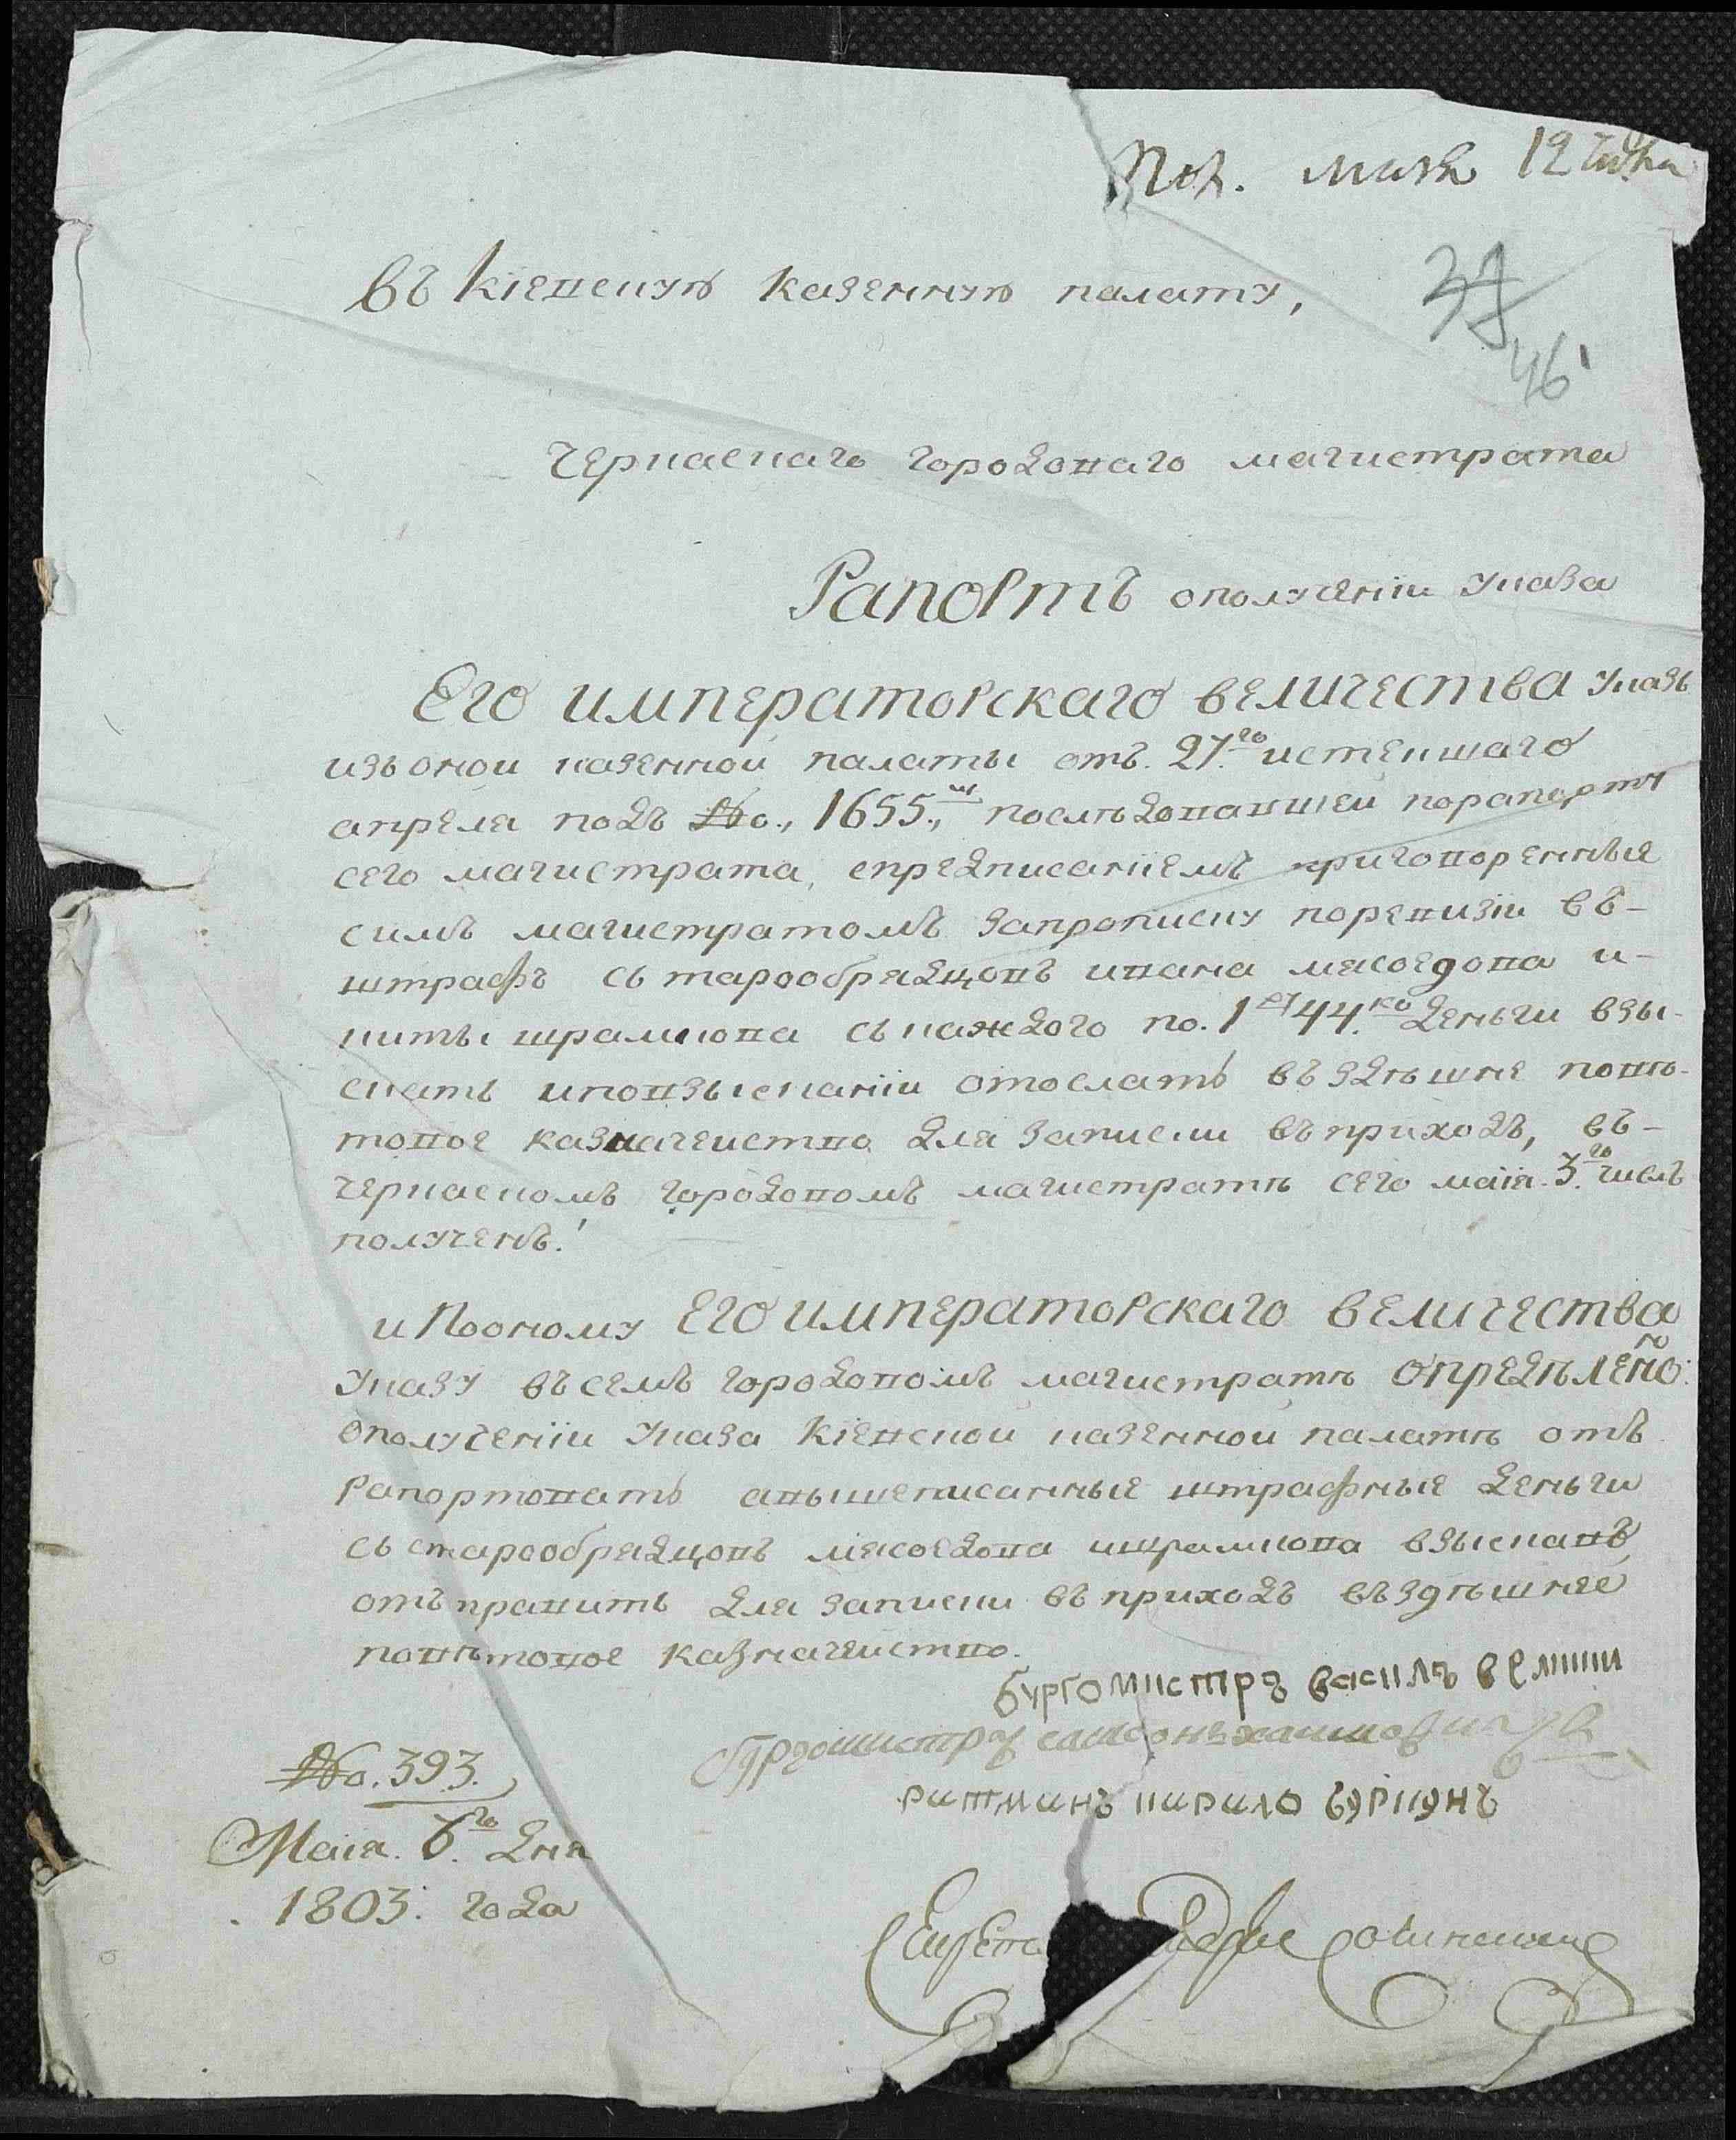 Пол. маія 12 числа
въ кіевскую казенную палату,
37
46
черкаскаго городоваго магистрата
Рапортъ ополученіи указа
Его императорскаго величества указъ
изъоной казенной палаты отъ. 27.го истекшаго
апреля подъ №о., 1655., м последовавшей порапорту
сего магистрата, спредписаніемъ приговоренныя
симъ магистратомъ запрописку поревизіи въ-
штрафъ състарообрядцовъ ивана мясоедова и-
никиты шрамкова съкаждого по. 1 ру 44. ко деньги взы-
скать иповзысканіи отослать въздѣшне повѣ-
товое казначеиство для записки въприходъ, въ-
черкаскомъ городовомъ магистратѣ сего маія. 3.го числъ
полученъ.
и Пооному Его императорскаго величества
указу въсемъ городовомъ магистратѣ опредѣлено:
ополученіи указа кіевской казенной палатѣ отъ
рапортовать авышеписанныя штрафныя деньги
състарообрядцовъ мясоедова ишрамкова взыскавъ
отъправить для записки въприходъ въздѣшнее
повѣтовое казначеиство.
бургомистръ василь
бургомистръ
ратманъ кирило
№о. 393.
Маія. 6.го дня
1803: года
Секрета